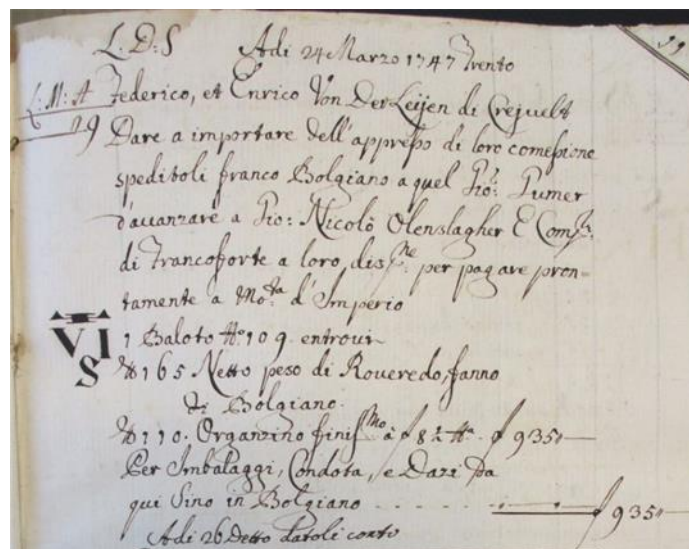 L. D: S Adi 24 Marzo 1747 Trento
L: M: A Federico, et Enrico Von Der Leijen di Crejvelt
29 Dare a importare dell'appresso di loro comessione
speditoli franco Bolgiano a quel Gio: Pumer
d'auanzare a Gio: Nicolò Olenslagher E Comp.
di Francoforte a loro dis.ne per pagare pron-
tamente a Mo.ta d'Imperio
VIS
1 Baloto No 109 entroui
℔ 165 Netto peso di Roueredo, fanno
di Bolgiano
℔ 110. Organzino finis.mo à f 8½ f 935
Per Imballaggi, Condota, e Dazi da
qui Sino in Bolgiano f 935
Adi 26 Detto datoli conto